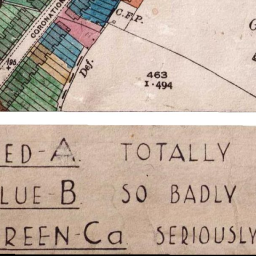 CORONATION
C.F.P.
Def.
463
1·494
ED-A. TOTALLY
LUE-B SO BADLY
REEN-Ca SERIOUSLY